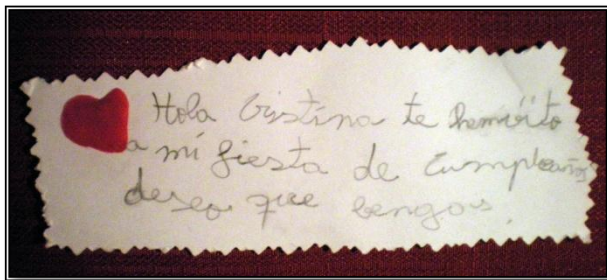 Hola Cristina te
a mi fiesta de Cumpleaños
deseo que bengas.